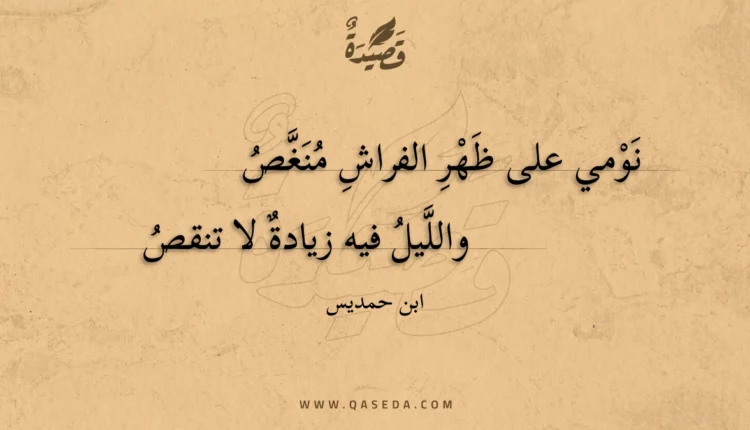 قَصِيْدَةٌ
نَوْمي على ظَهْرِ الفراشِ مُنَغَّصُ
واللَّيلُ فيه زيادةٌ لا تنقصُ
ابن حمديس
WWW.QASEDA.COM